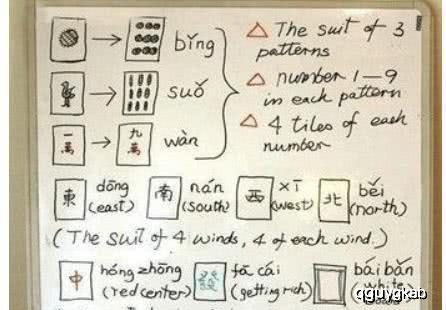 bǐng
△ The suit of 3
patterns
suǒ
△ number 1—9
in each pattern
一萬 → 九萬 wàn
△ 4 tiles of each
number
東 dōng (east) 南 nán (south) 西 xī (west) 北 běi (north)
(The suit of 4 winds, 4 of each wind.)
中 hóng zhōng (red center) 發 fā cái (getting rich) bái bǎn (white
qguygkab